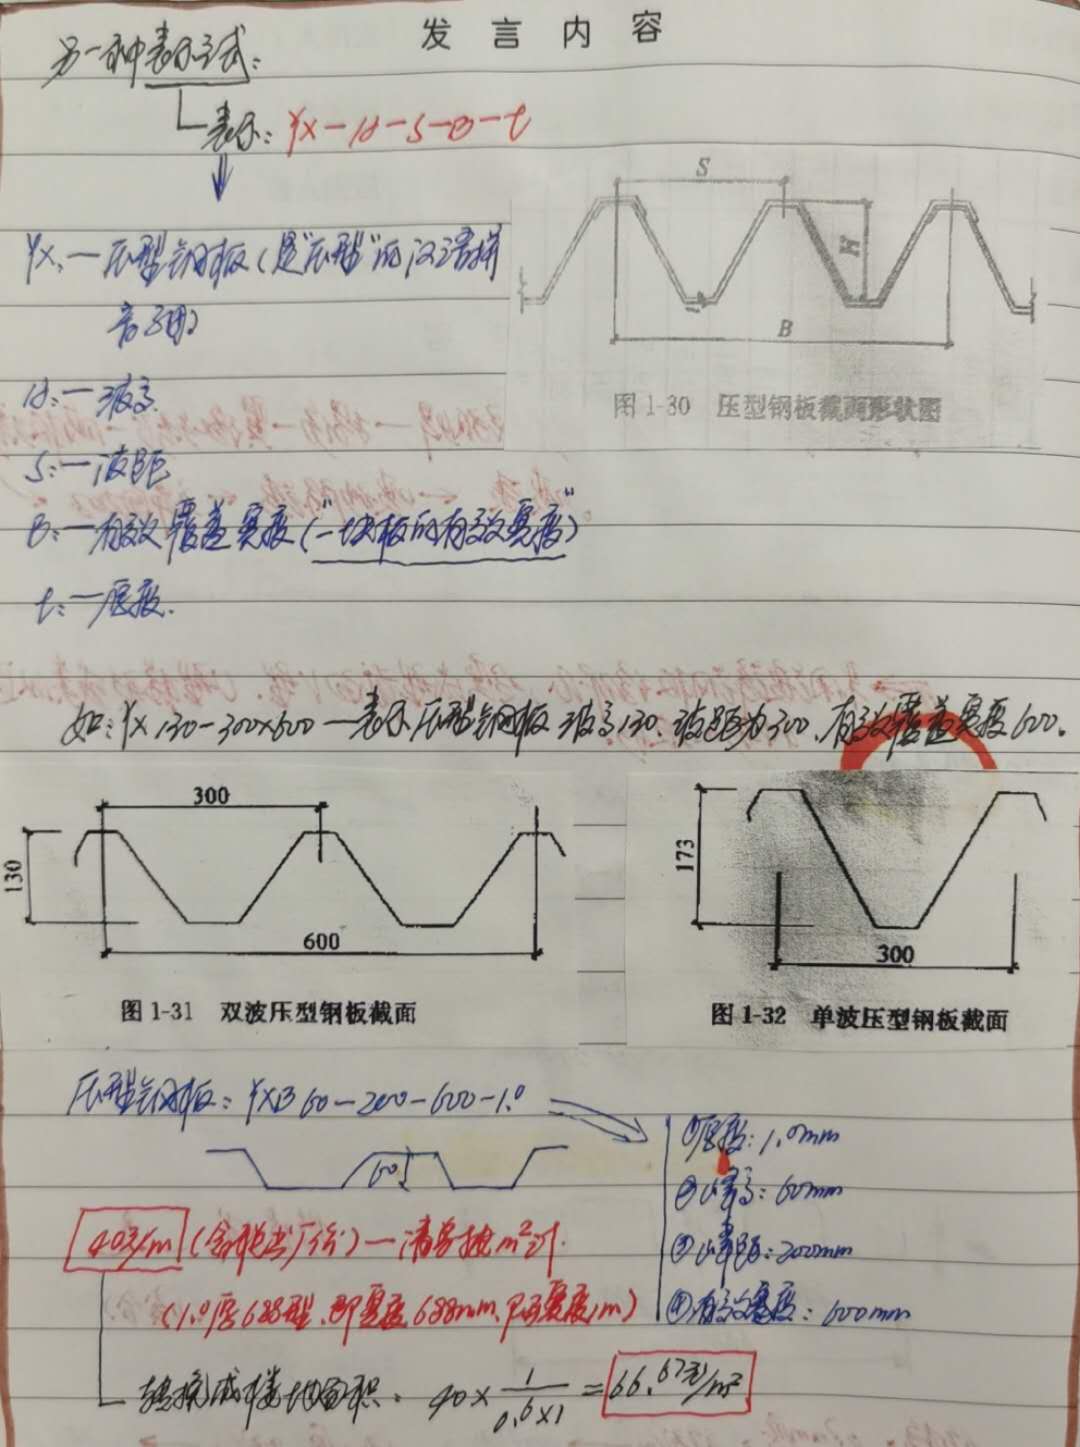 发言内容
另一种表示方式：
表示：YX-H-S-B-t
YX：一压型钢板（是"压型"的汉语拼
音字母）
H：一波高
S：一波距
B：一有效覆盖宽度（"一块板的有效宽度"）
t：一厚度.
S
H
B
图 1-30 压型钢板截面形状图
如：YX130-300×600一表示压型钢板波高130、波距为300、有效覆盖宽度600.
300
130
600
图 1-31 双波压型钢板截面
173
300
图 1-32 单波压型钢板截面
压型钢板：YXB60-200-600-1.0
60
①厚度：1.0mm
②峰高：60mm
③峰距：200mm
④有效宽度：600mm
40元/m（含税出厂价）一清单按m²计.
（1.0厚688型，即宽度688mm、宽度/m）
转换成楼地面积：40×1/(0.6×1)=66.67元/m²